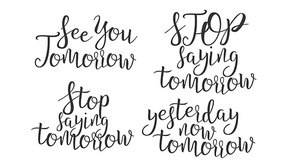 See You
Tomorrow
STOP
saying
tomorrow
Stop
saying
tomorrow
yesterday
now
tomorrow